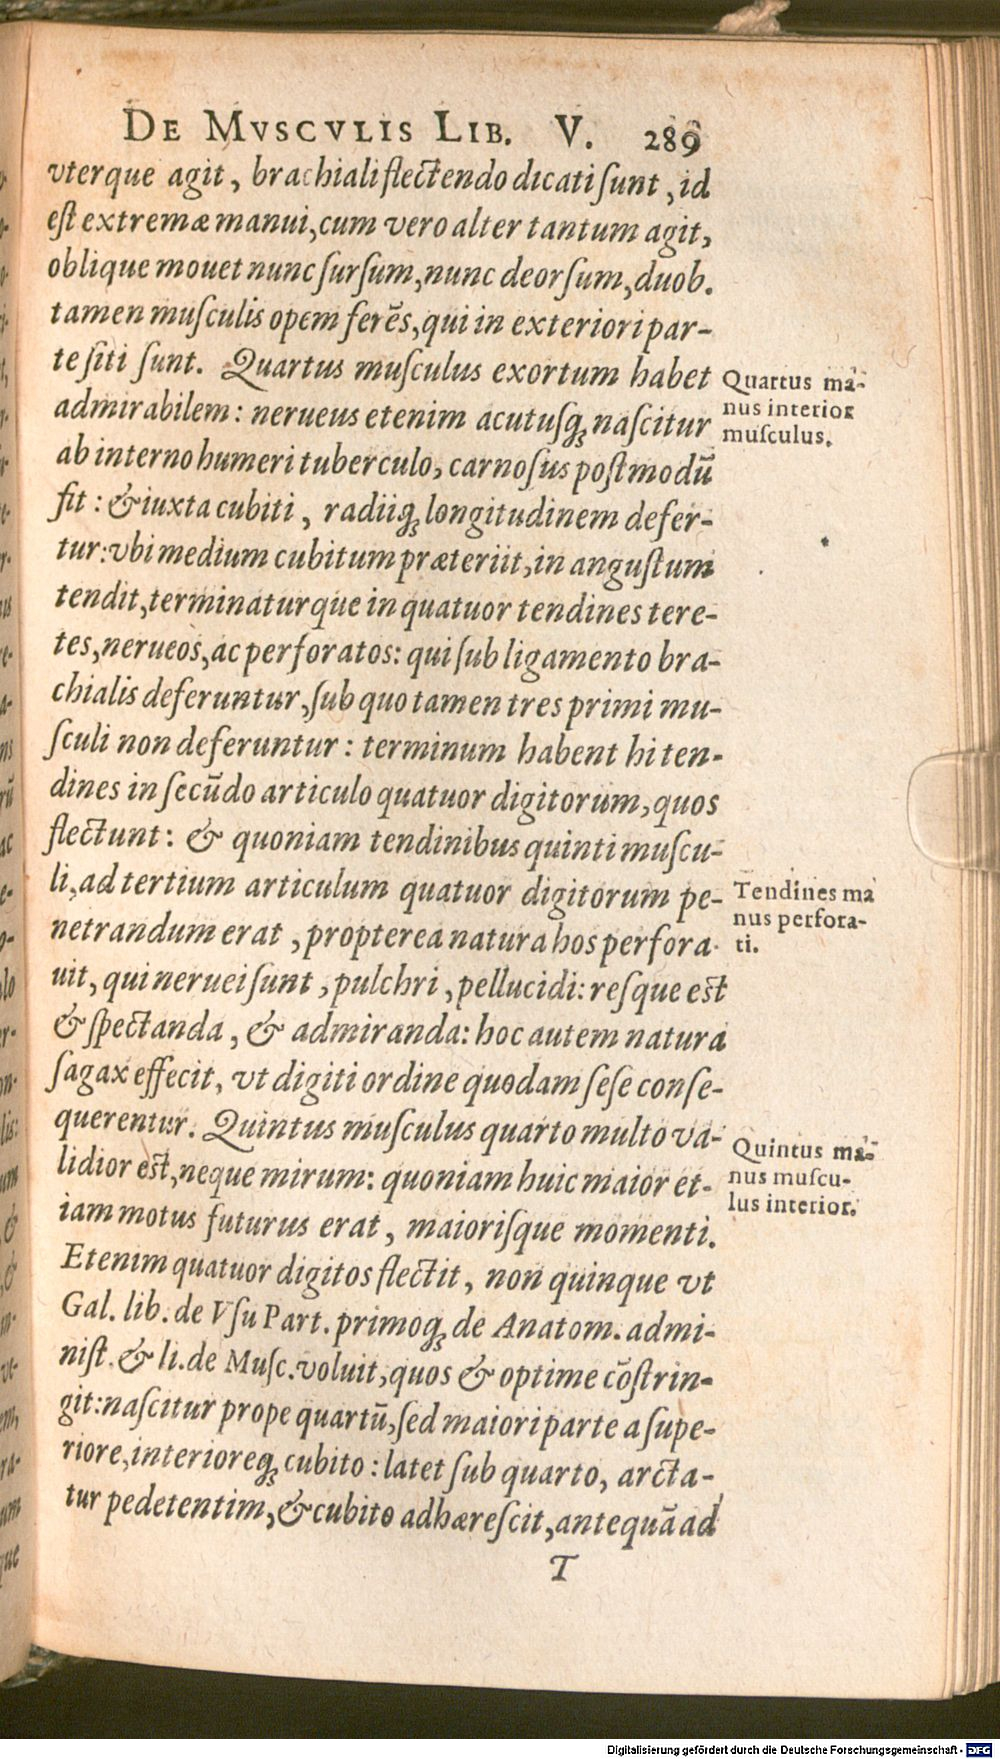 DE MVSCVLIS LIB. V. 289
vterque agit, brachiali flectendo dicati sunt, id
est extremæ manui, cum vero alter tantum agit,
oblique mouet nunc sursum, nunc deorsum, duob.
tamen musculis opem ferẽs, qui in exteriori par-
te siti sunt. Quartus musculus exortum habet
admirabilem: nerueus etenim acutusq; nascitur
ab interno humeri tuberculo, carnosus postmodũ
fit: & iuxta cubiti, radiiq; longitudinem defer-
tur: vbi medium cubitum præteriit, in angustum
tendit, terminaturque in quatuor tendines tere-
tes, nerueos, ac perforatos: qui sub ligamento bra-
chialis deferuntur, sub quo tamen tres primi mu-
sculi non deferuntur: terminum habent hi ten-
dines in secũdo articulo quatuor digitorum, quos
flectunt: & quoniam tendinibus quinti muscu-
li, ad tertium articulum quatuor digitorum pe-
netrandum erat, propterea natura hos perfora-
uit, qui neruei sunt, pulchri, pellucidi: resque est
& spectanda, & admiranda: hoc autem natura
sagax effecit, vt digiti ordine quodam sese conse-
querentur. Quintus musculus quarto multo va-
lidior est, neque mirum: quoniam huic maior et-
iam motus futurus erat, maiorisque momenti.
Etenim quatuor digitos flectit, non quinque vt
Gal. lib. de Vsu Part. primoq; de Anatom. admi-
nist. & li. de Musc. voluit, quos & optime cõstrin-
git: nascitur prope quartũ, sed maiori parte a supe-
riore, interioreq; cubito: latet sub quarto, arcta-
tur pedetentim, & cubito adhærescit, antequã ad
T
Quartus ma-
nus interior
musculus.
Tendines ma
nus perfora-
ti.
Quintus ma-
nus muscu-
lus interior.
Digitalisierung gefördert durch die Deutsche Forschungsgemeinschaft - DFG